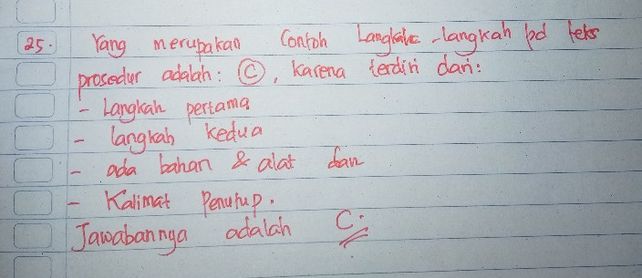 25. Yang merupakan Contoh Langkah-langkah pd teks
prosedur adalah: C, karena terdiri dari:
- Langkah pertama
- langkah kedua
- ada bahan & alat dan
- Kalimat Penutup.
Jawabannya adalah C.